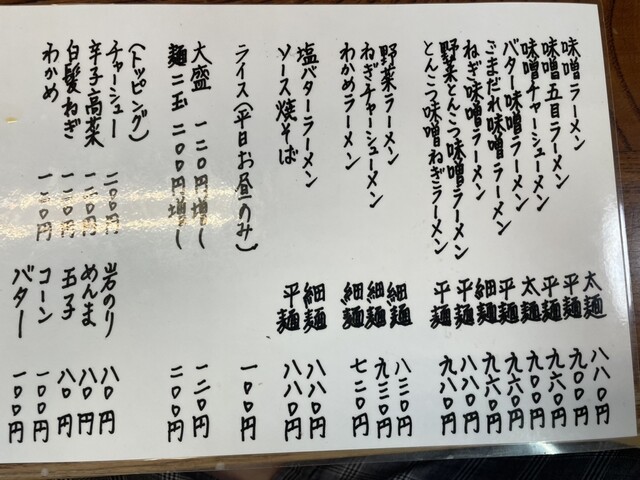 味噌ラーメン 太麺 八八〇円
味噌五目ラーメン 平麺 九〇〇円
味噌チャーシューメン 平麺 九六〇円
バター味噌ラーメン 太麺 九〇〇円
ごまだれ味噌ラーメン 平麺 九六〇円
ねぎ味噌ラーメン 細麺 九六〇円
野菜とんこつ味噌ラーメン 平麺 八八〇円
とんこつ味噌ねぎラーメン 平麺 九八〇円
野菜ラーメン 細麺 八三〇円
ねぎチャーシューメン 細麺 九三〇円
わかめラーメン 細麺
塩バターラーメン 細麺 八八〇円
ソース焼そば 平麺 八八〇円
ライス(平日お昼のみ) 一〇〇円
大盛 一二〇円増し 一二〇円
麺二玉 二〇〇円増し 二〇〇円
(トッピング)
チャーシュー 二〇〇円
辛子高菜
白髪ねぎ
わかめ
岩のり 八〇円
めんま 八〇円
玉子 八〇円
コーン 一〇〇円
バター 一〇〇円